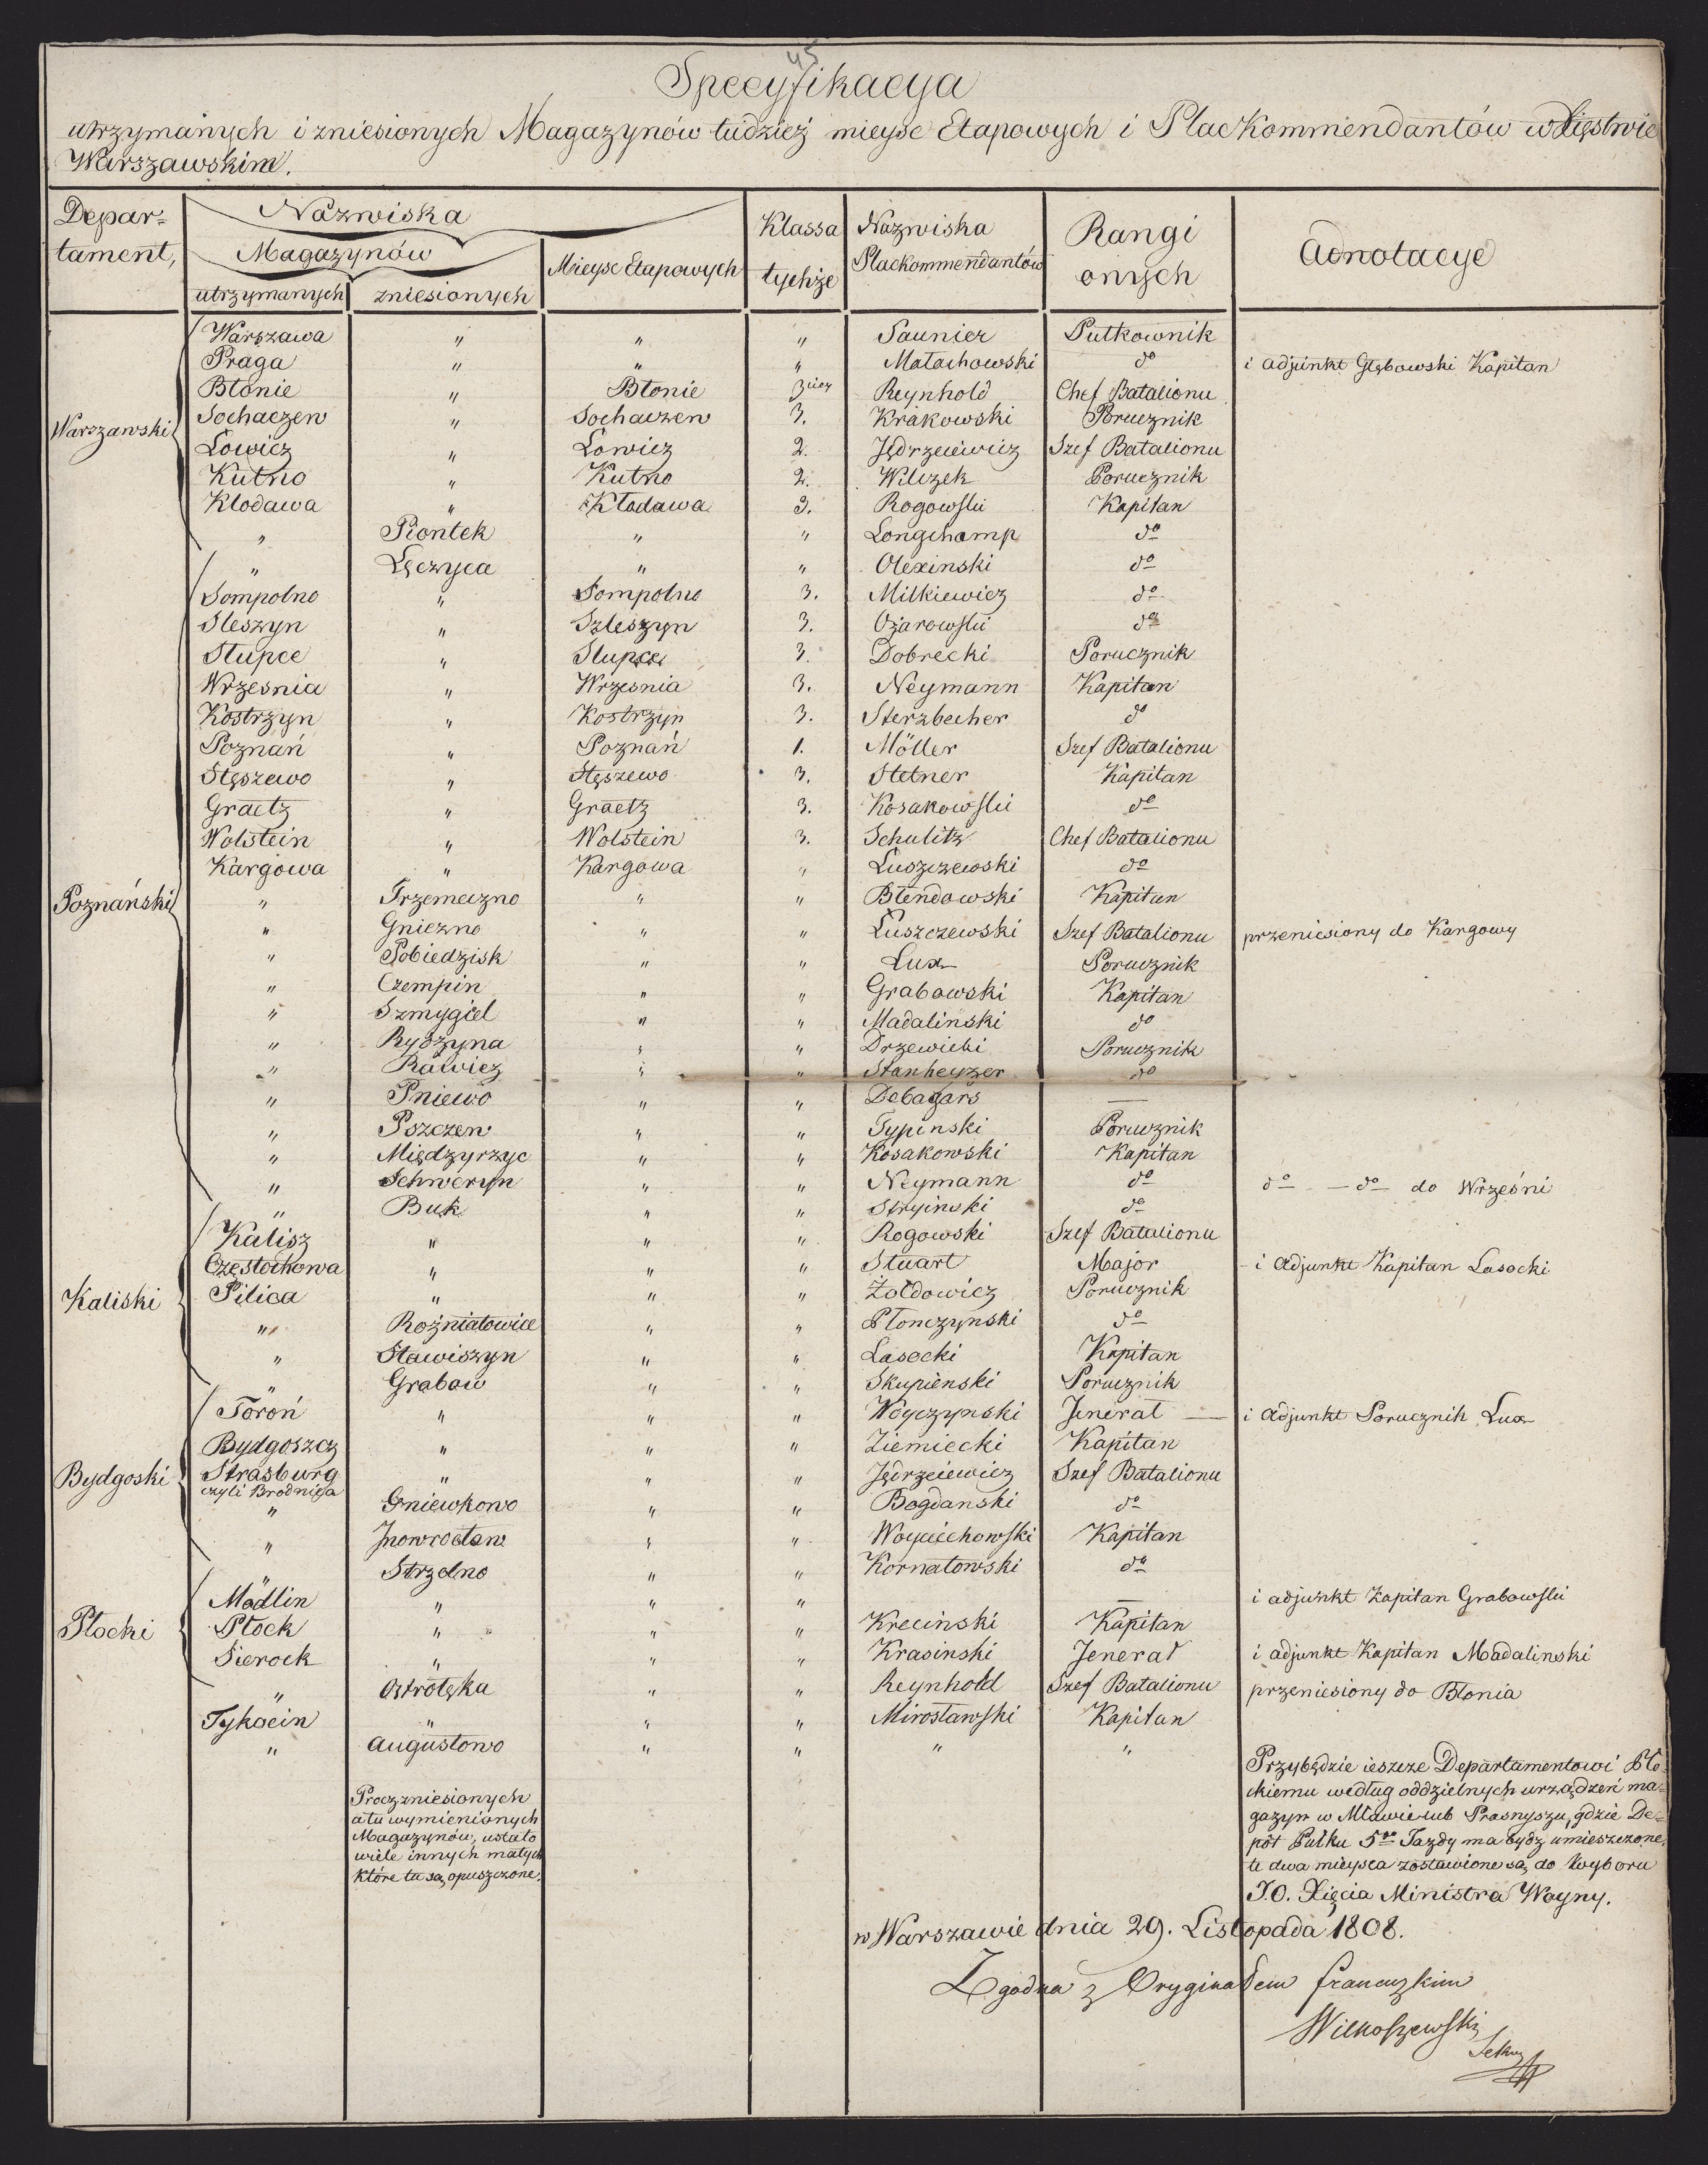 45
Specyfikacya
utrzymanych i zniesionych Magazynów tudzież mieysc Etapowych i Plackommendantów w Xięstwie
Warszawskim.
Depar= Nazwiska Klassa Nazwiska Rangi Adnotacye
tament, Magazynów Mieysc Etapowych tychże Plackommendantów onych
utrzymanych zniesionych
Warszawa " " " Saunier Pułkownik
Praga " " " Małachowski do i adjunkt Głębowski Kapitan
Błonie " Błonie 3ciey Reynhold Chef Batalionu
Warszawski Sochaczew " Sochaczew 3. Krakowski Porucznik
Łowicz " Łowicz 2. Jędrzeiewicz Szef Batalionu
Kutno " Kutno 2. Wilczek Porucznik
Kłodawa " Kłodawa 3. Rogowski Kapitan
" Piontek " " Longchamp do
" Łęczyca " " Olexinski do
Sompolno " Sompolno 3. Milkiewicz do
Sleszyn " Szleszyn 3. Ożarowski do
Słupce " Słupce 3. Dobrecki Porucznik
Wrzesnia " Wrzesnia 3. Neymann Kapitan
Kostrzyn " Kostrzyn 3. Sterzbecher do
Poznań " Poznań 1. Möller Szef Batalionu
Stęszewo " Stęszewo 3. Stetner Kapitan
Graetz " Graetz 3. Kosakowski do
Wolstein " Wolstein 3. Schulitz Chef Batalionu
Kargowa " Kargowa " Łuszczewski do
Poznański " Trzemeczno " " Blendowski Kapitan
" Gniezno " " Łuszczewski Szef Batalionu przeniesiony do Kargowy
" Pobiedzisk " " Lux Porucznik
" Czempin " " Grabowski Kapitan
" Szmygiel " " Madalinski do
" Rydzyna " " Drzewicki Porucznik
" Rawicz " " Stanheyzer do
" Pniewo " " Debagars —
" Pszczew " " Typinski Porucznik
" Międzyrzyc " " Kosakowski Kapitan
" Schweryn " " Neymann do do — do do Wrześni
" Buk " " Stryinski do
Kalisz " " " Rogowski Szef Batalionu
Częstochowa " " " Stuart Major - i Adjunkt Kapitan Lasocki
Kaliski Pilica " " " Żołdowicz Porucznik
" Rożniatowice " " Płonczynski do
" Stawiszyn " " Lasocki Kapitan
" Grabow " " Skupienski Porucznik
Toroń " " " Woyczynski Jenerał — i Adjunkt Porucznik Lux
Bydgoszcz " " " Ziemiecki Kapitan
Bydgoski Strasburg " " " Jędrzeiewicz Szef Batalionu
czyli Brodnica
" Gniewkowo " " Bogdanski do
" Jnowrocław " " Woyciechowski Kapitan
" Strzelno " " Kornatowski do
Modlin " " " — i adjunkt Kapitan Grabowski
Płocki Płock " " " Krecinski Kapitan
Sierock " " " Krasinski Jenerał i adjunkt Kapitan Madalinski
" Ostrołęka " " Reynhold Szef Batalionu przeniesiony do Błonia
Tykocin " " " Mirosławski Kapitan
" Augustowo " " " "
Przybędzie ieszcze Departamentowi Pło=
ckiemu według oddzielnych urządzeń ma=
gazyn w Mławie lub Prasnyszu, gdzie De=
pôt Pułku 5go Jazdy ma bydź umieszczone,
te dwa mieysca zostawione są do wyboru
J.O. Xięcia Ministra Woyny.
Procz zniesionych
a tu wymienionych
Magazynów, ustało
wiele innych małych
które tu są opuszczone.
w Warszawie dnia 29. Listopada 1808.
Zgodna z Oryginałem francuzkim
Wilkoszewski
Sekr